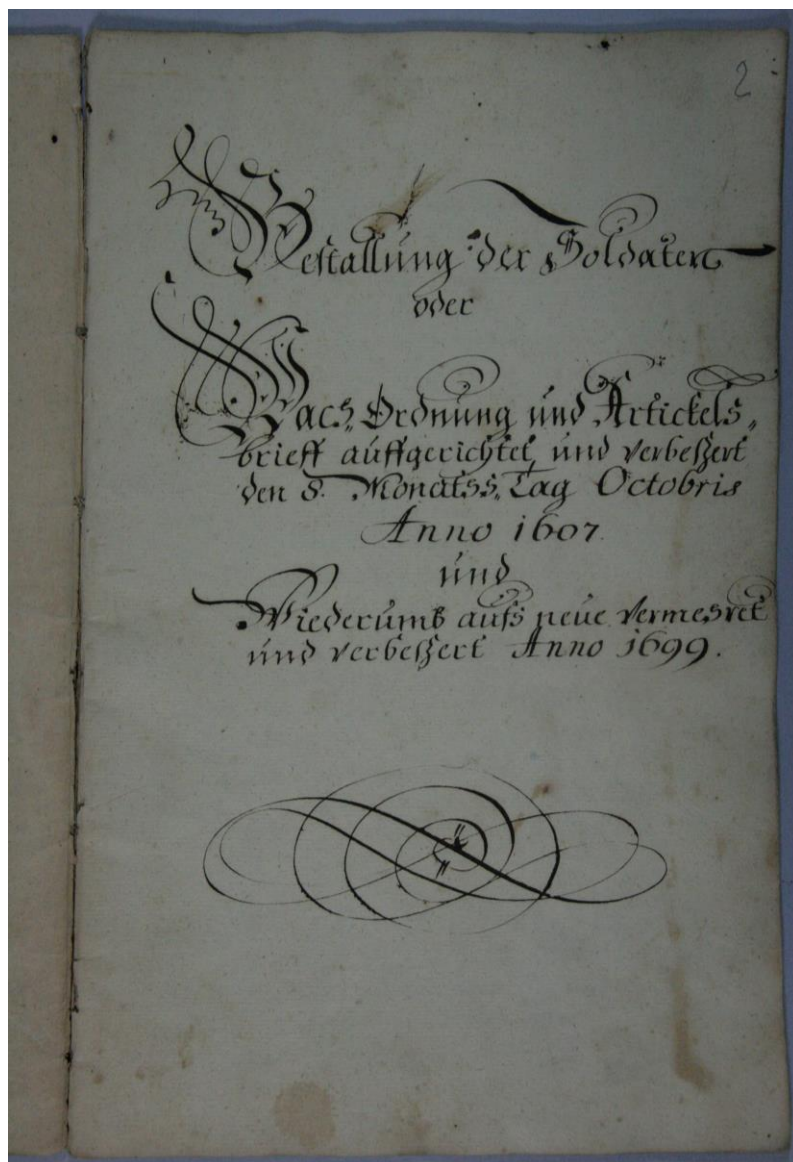 2
Bestallung der Soldaten
oder
Wach Ordnung und Artickels„
brieff auffgerichtet, und verbeßert
den 8. Monatss„Tag Octobris
Anno 1607.
und
Wiederumb aufs neue vermehret
und verbeßert Anno 1699.